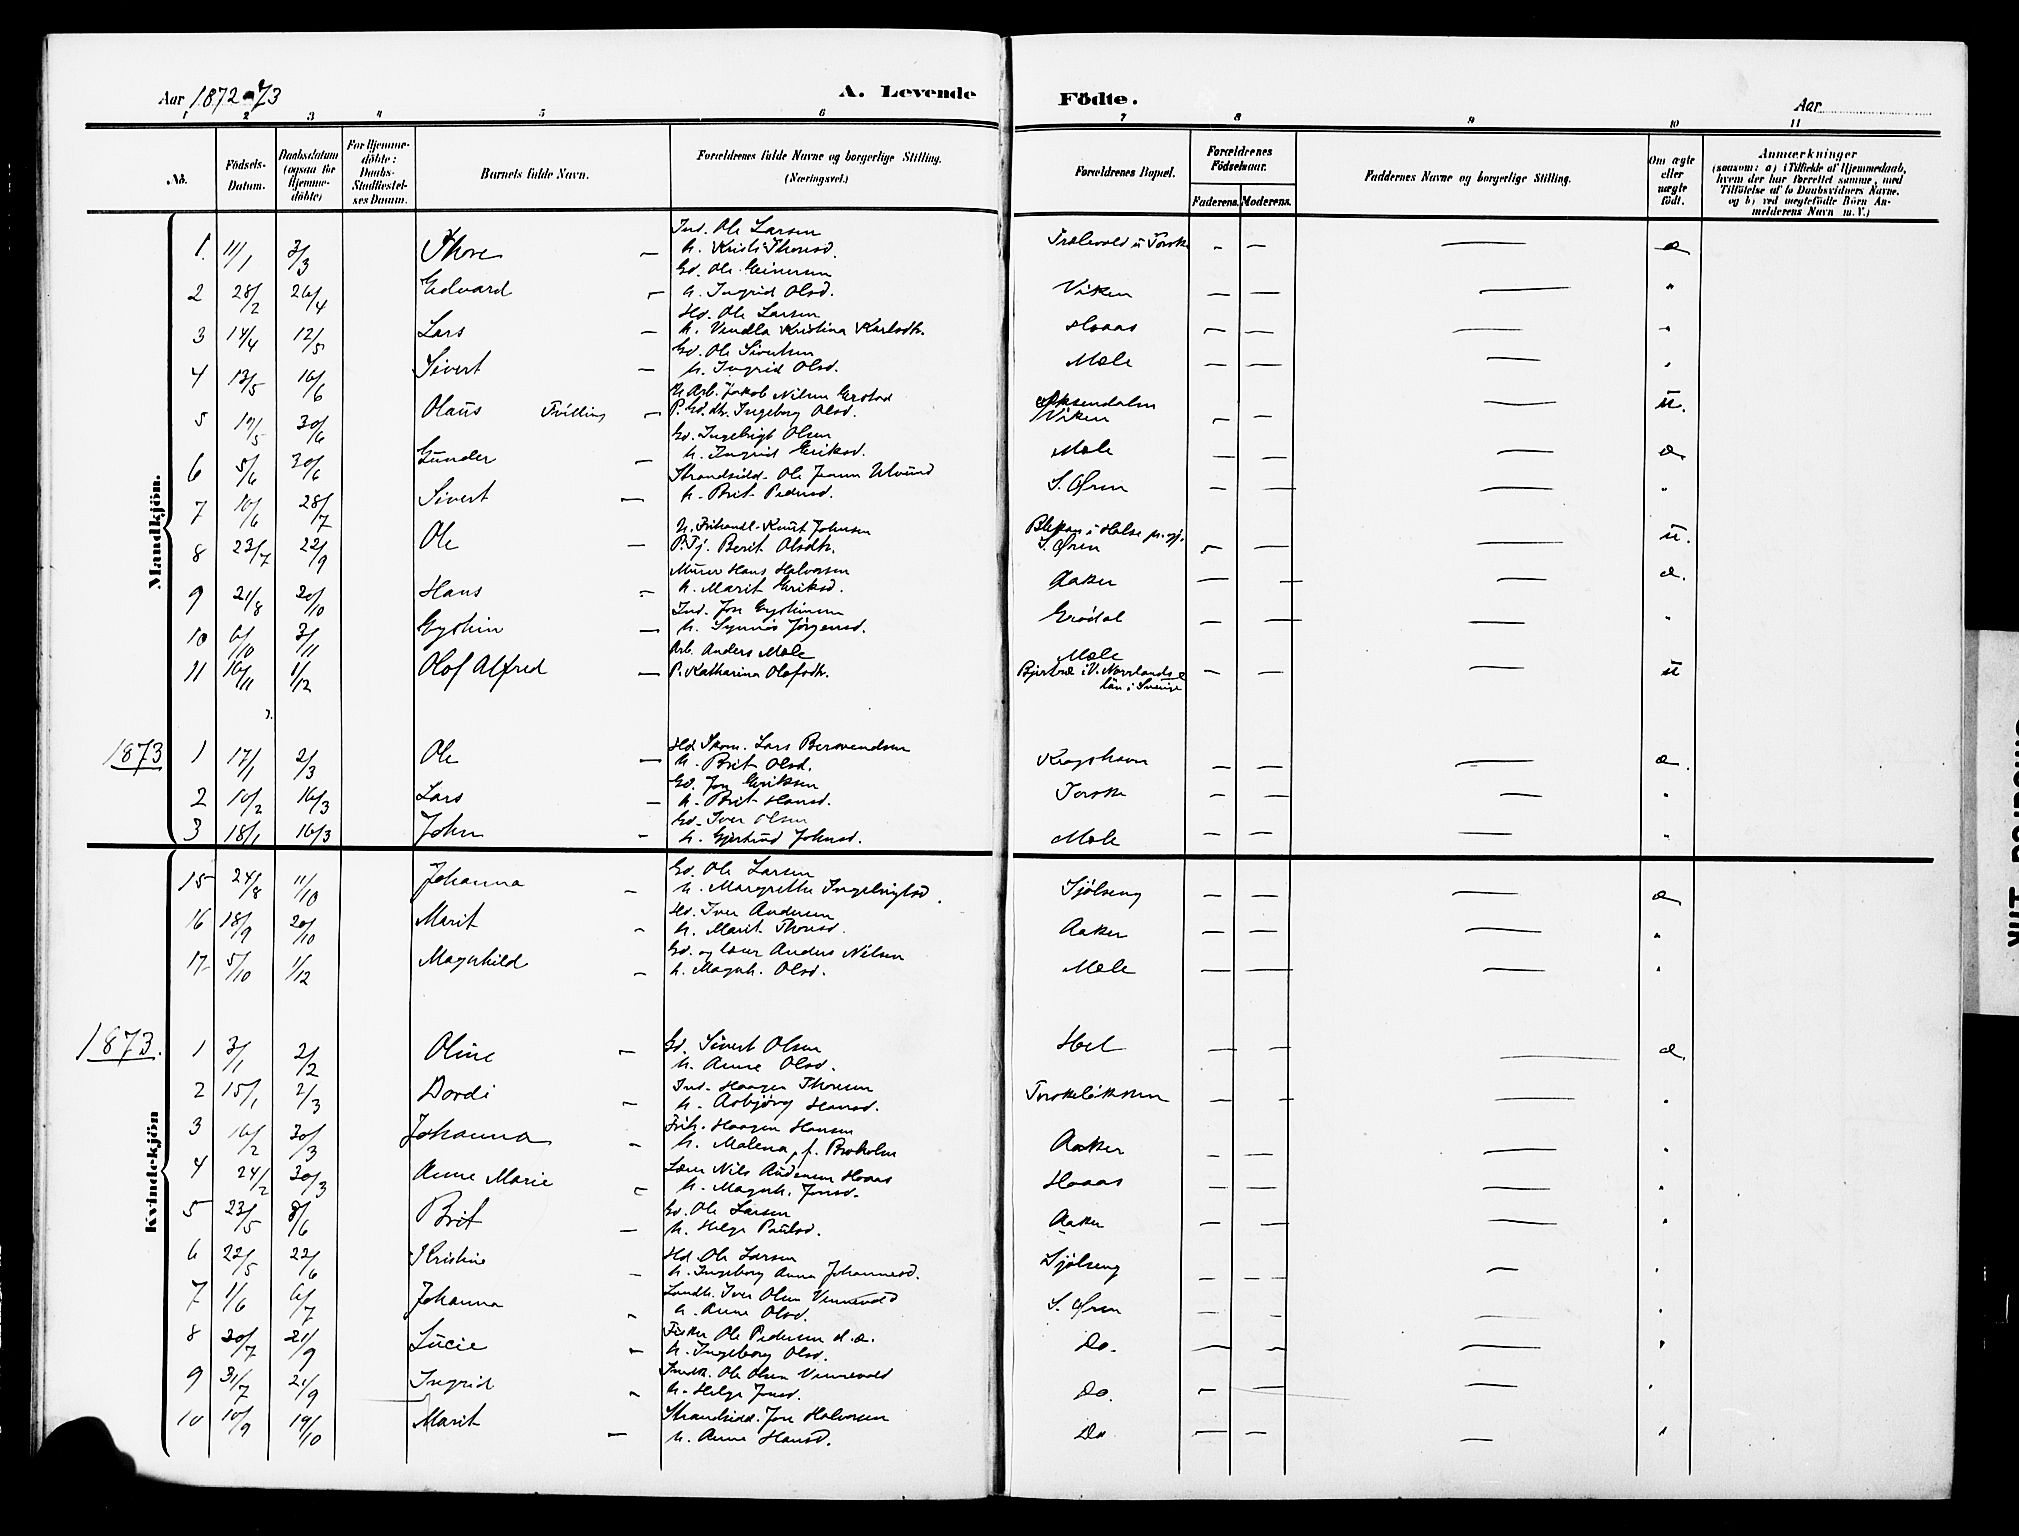 Aar 1872-73 A. Levende Födte. Aar
1 2 3 4 5 6 7 8 9 10 11
No. Födsels-Datum. Daabsdatum (ogsaa for Hjemmedöbte) For Hjemmedöbte: Daabs-Stadfæstelses Datum. Barnets fulde Navn. Forældrenes fulde Navne og borgerlige Stilling. (Næringsvei.) Forældrenes Bopæl. Forældrenes Födselsaar. Faderens. Moderens. Faddernes Navne og borgerlige Stilling. Om ægte eller uægte födt. Anmærkninger (saasom: a) i Tilfælde af Hjemmedaab, hvem der har forrettet samme, med Tilföielse af to Daabsvidners Navne, og b) ved uægtefödte Börn Anmelderens Navn m. V.)
Mandkjön.
1. 11/1 3/3 Thore — Ind. Ole Larsen
h. Kristi Thoresd. Torske — — — æ
2 28/2 26/4 Edvard — Gd. Ole Einersen
h. Ingrid Olsd. Viken — — — "
3 14/4 12/5 Lars — Hd. Ole Larsen
h. Vendla Kristina Karlsdtr. Haaas — — — "
4 13/5 16/6 Sivert — Gd. Ole Sivertsen
h. Ingrid Olsd. Mæle — — — "
5 19/5 30/6 Olaus Tvilling — U. Arb. Jakob Nilsen
P. Gd. dtr. Ingeborg Olsd. Viken — — u.
6 5/6 30/6 Gunder — Gd. Ingebrigt Olsen
h. Ingrid Eriksd. Mæle — — — æ
7 10/6 28/7 Sivert — Strandsidd. Ole Jansen Ulvund
h. Brit Pedersd. S. Øren — — — "
8 23/7 22/9 Ole — U. Frihandl. Knut Johnsen
P. Tj. Berit Olsdtr. i Halse pr.gj.
S. Øren — — — u.
9 21/8 20/10 Hans — Murer Hans Halvorsen
h. Marit Eriksd. Aaker — — — æ.
10 6/10 3/11 Eystein — Ind. Jon Eysteinsen
h. Synnøs Jørgensd. Grødal — — — "
11 16/11 1/12 Olof Alfred — Arb. Anders Mæle
P. Katharina Olofsdtr. Mæle
i V. Norrlands
län i Sverige — — — u
1873 1 17/1 2/3 Ole — Hd. Skom. Lars Bersvendsen
h. Brit Olsd. Krogshavn — — — æ.
2 10/2 16/3 Lars — Gd. Jon Eriksen
h. Brit Hansd. Torske — — — "
3 18/1 16/3 John — Gd. Iver Olsen
h. Gjertrud Johnsd. Mæle — — — "
Kvindekjön
15 24/8 11/10 Johanna — Gd. Ole Larsen
h. Margrethe Ingebrigtsd. Sjølseng — — — æ
16 18/9 20/10 Marit — Hd. Iver Andersen
h. Marit Thoresd. Aaker — — — "
17 5/10 1/12 Magnhild — Gd. og lærer Anders Nilsen
h. Magnh. Olsd. Mæle — — — "
1873. 1 3/1 2/2 Oline — Gd. Sivert Olsen
h. Anne Olsd. Hoel — — — æ
2 15/1 2/3 Dordi — Ind. Haagen Thoresen
h. Asbjørg Hansd. Torskeløkken — — — "
3 16/2 30/3 Johanna — Frih. Haagen Hansen
h. Malena, f. Broholm Aaker — — — "
4 24/2 30/3 Anne Marie — Lærer Nils Andersen Haaas
h. Magnh. Jonsd. Haaas — — — "
5 23/5 8/6 Brit — Gd. Ole Larsen
h. Helge Paulsd. Aaker — — — "
6 22/5 22/6 Kristine — Hd. Ole Larsen
h. Ingeborg Anna Johannesd. Sjølseng — — — "
7 1/6 6/7 Johanna — Landh. Iver Olsen Vennevold
h. Anne Olsd. S. Øren — — — "
8 20/7 21/9 Lucie — Fisker Ole Pedersen d. æ.
h. Ingeborg Olsd. Do. — — — "
9 31/7 21/9 Ingrid — Ole Olsen Vennevold
h. Helge Jonsd. Do. — — — "
10 10/9 19/10 Marit — Strandsidd. Jon Halvorsen
h. Anne Hansd. Do — — — "